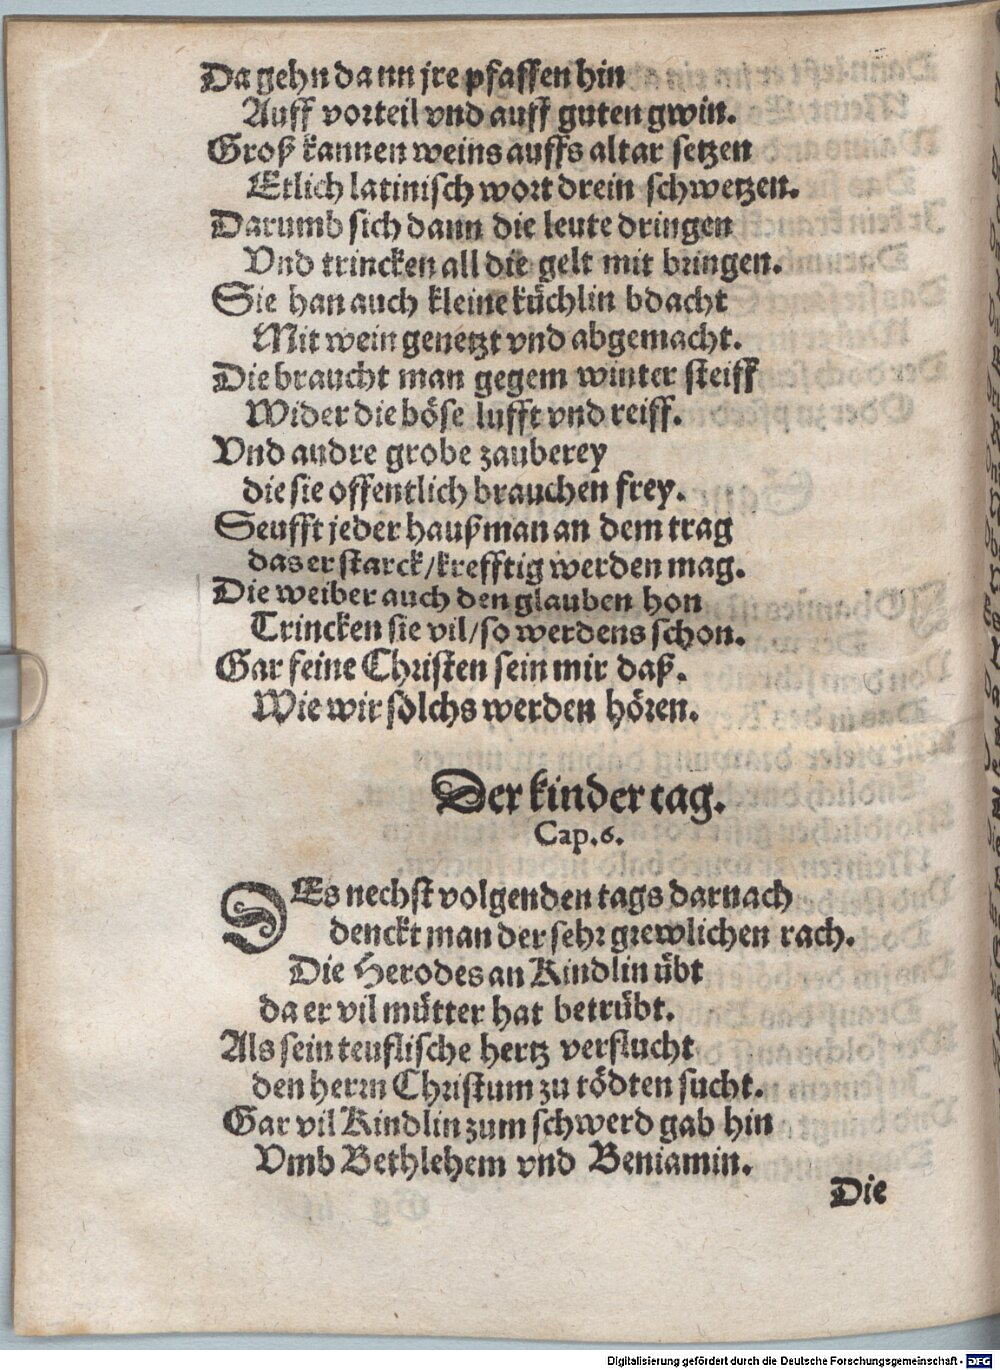 Da gehn dann jre pfaffen hin
Auff vorteil vnd auff guten gwin.
Groß kannen weins auffs altar setzen
Etlich latinisch wort drein schwetzen.
Darumb sich dann die leute dringen
Vnd trincken all die gelt mit bringen.
Sie han auch kleine küchlin bdacht
Mit wein genetzt vnd abgemacht.
Die braucht man gegem winter steiff
Wider die böse lufft vnd reiff.
Vnd andre grobe zauberey
die sie offentlich brauchen frey.
Seufft jeder haußman an dem trag
das er starck/krefftig werden mag.
Die weiber auch den glauben hon
Trincken sie vil/so werdens schon.
Gar feine Christen sein mir daß.
Wie wir solchs werden hören.
Der kinder tag.
Cap.6.
DEs nechst volgenden tags darnach
denckt man der sehr grewlichen rach.
Die Herodes an Kindlin übt
da er vil mütter hat betrübt.
Als sein teuflische hertz verflucht
den herrn Christum zu tödten sucht.
Gar vil Kindlin zum schwerd gab hin
Vmb Bethlehem vnd Beniamin.
Die
Digitalisierung gefördert durch die Deutsche Forschungsgemeinschaft - DFG